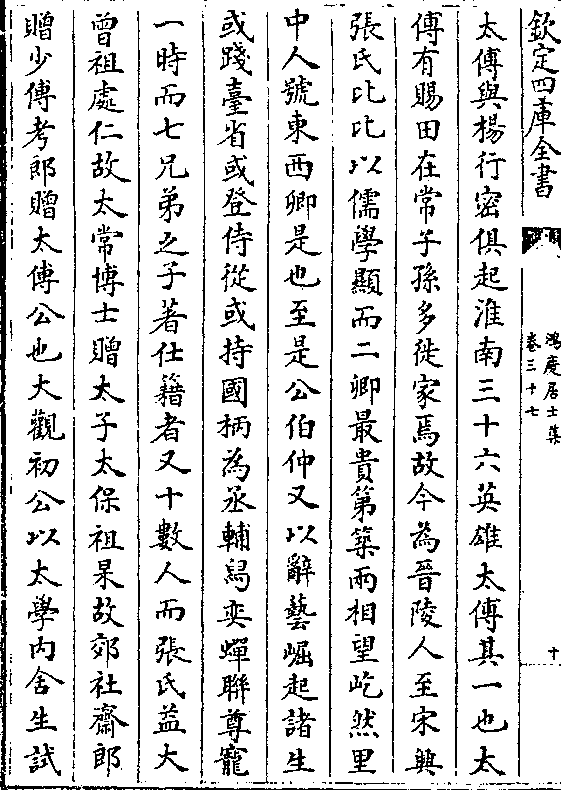 欽定四庫全書
鴻慶居士集
卷三十七
十
太傅與楊行密俱起淮南三十六英雄太傅其一也太
傅有賜田在常子孫多徙家焉故今為晉陵人至宋興
張氏比比以儒學顯而二卿最貴第築兩相望屹然里
中人號東西卿是也至是公伯仲又以辭藝崛起諸生
或踐臺省或登侍從或持國柄為丞輔舄奕蟬聯尊寵
一時而七兄弟之子著仕籍者又十數人而張氏益大
曾祖處仁故太常博士贈太子太保祖杲故郊社齋郎
贈少傅考郎贈太傅公也大觀初公以太學內舍生試